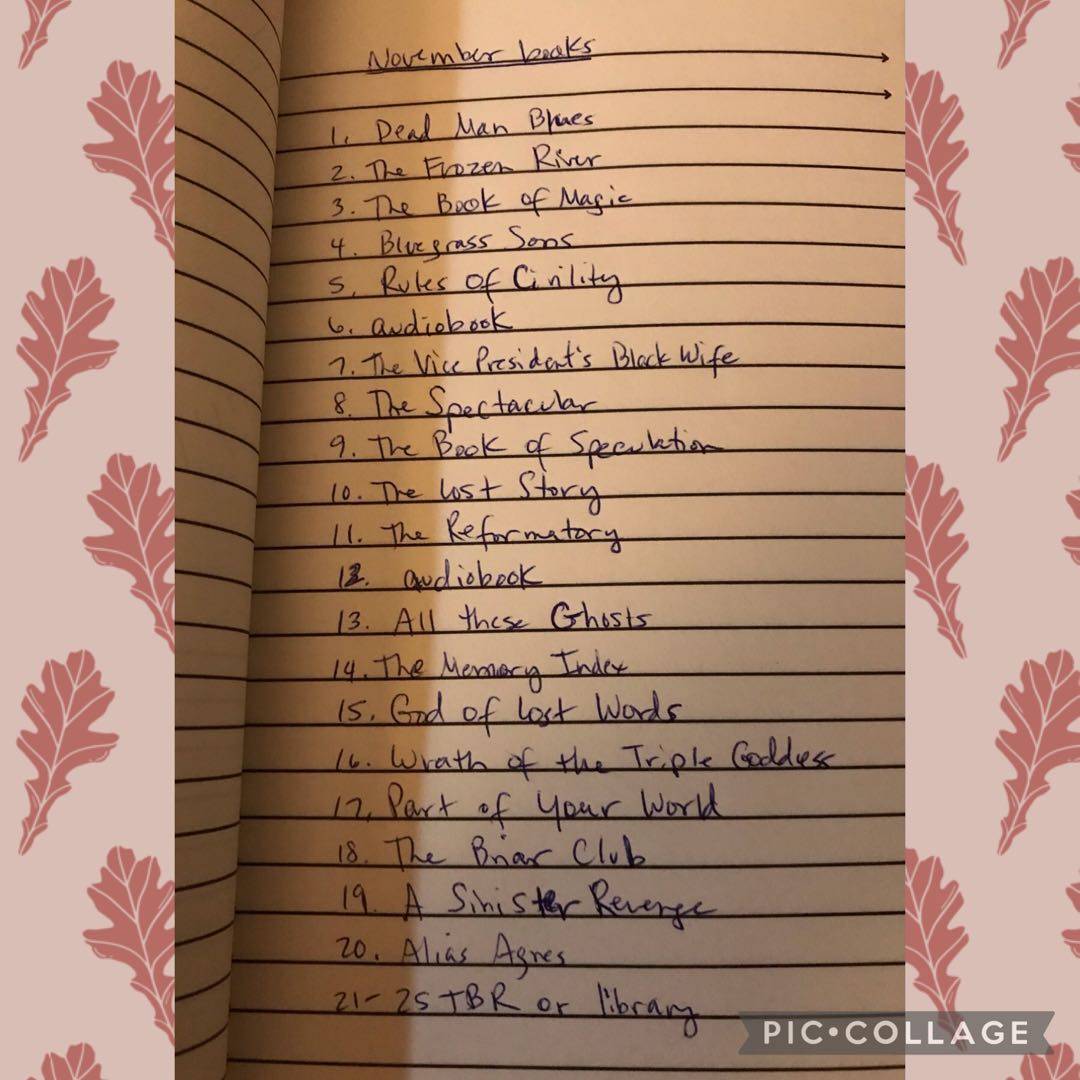 November books
1. Dead Man Blues
2. The Frozen River
3. The Book of Magic
4. Bluegrass Sons
5. Rules of Civility
6. audiobook
7. The Vice President's Black Wife
8. The Spectacular
9. The Book of Speculation
10. The Lost Story
11. The Reformatory
12. audiobook
13. All these Ghosts
14. The Memory Index
15. God of Lost Words
16. Wrath of the Triple Goddess
17. Part of Your World
18. The Briar Club
19. A Sinister Revenge
20. Alias Agnes
21-25 TBR or library
PIC•COLLAGE